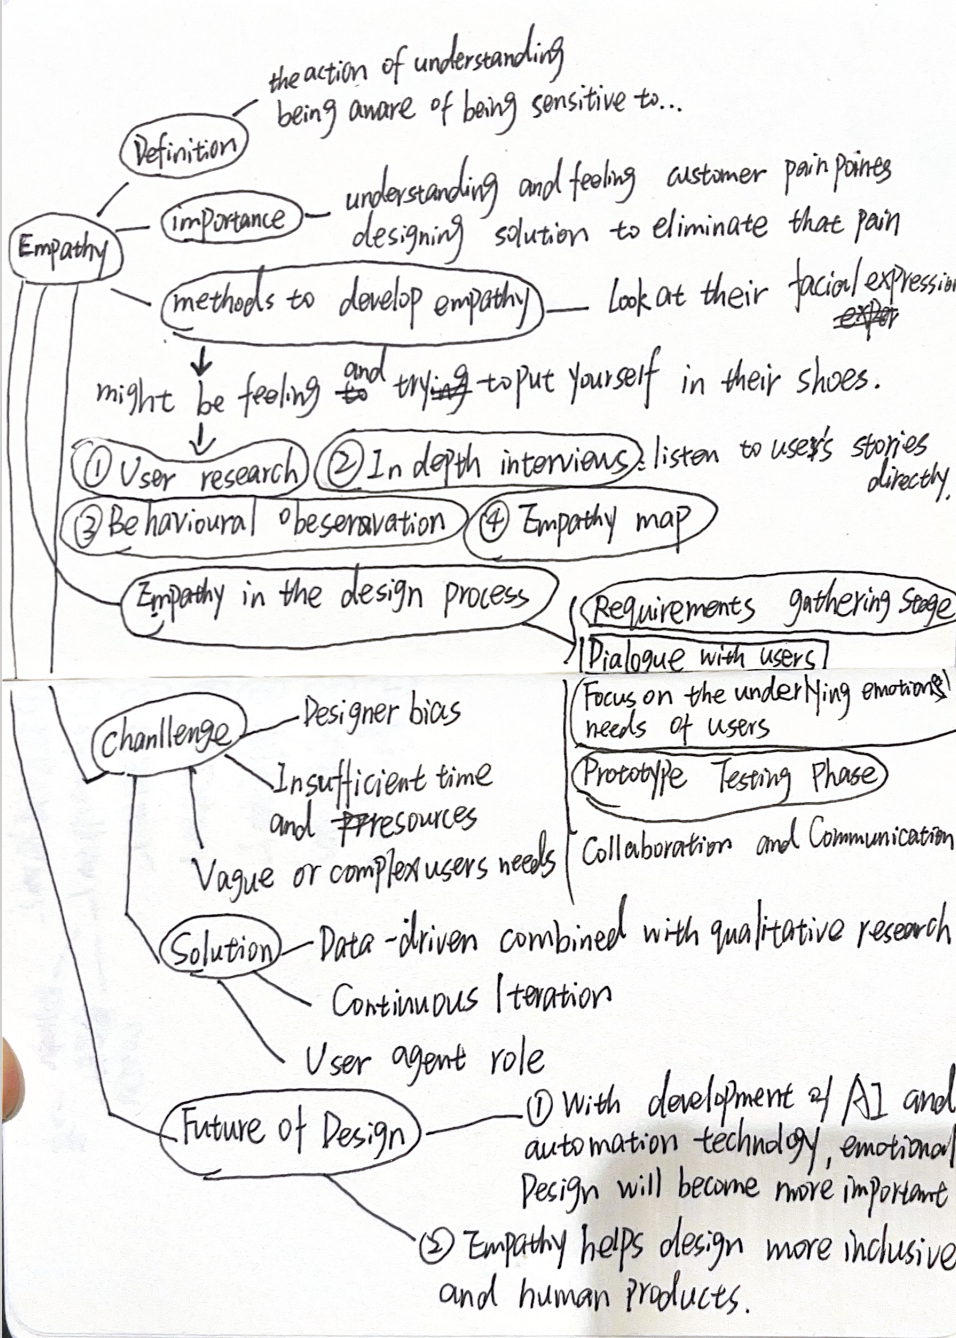 the action of understanding
being aware of being sensitive to...
Definition
importance
understanding and feeling customer pain points
designing solution to eliminate that pain
Empathy
methods to develop empathy
Look at their facial expression
might be feeling and try to put yourself in their shoes.
① User research
② In depth interviews: listen to user's stories
directly.
③ Behavioural obeseravation
④ Empathy map
Empathy in the design process
Requirements gathering stage
Dialogue with users
Focus on the underlying emotional
needs of users
Prototype Testing Phase
Collaboration and Communication
Chanllenge
Designer bias
Insufficient time
and resources
Vague or complex users needs
Solution
Data-driven combined with qualitative research
Continuous Iteration
User agent role
Future of Design
① With development of AI and
automation technology, emotional
Design will become more important
② Empathy helps design more inclusive
and human products.